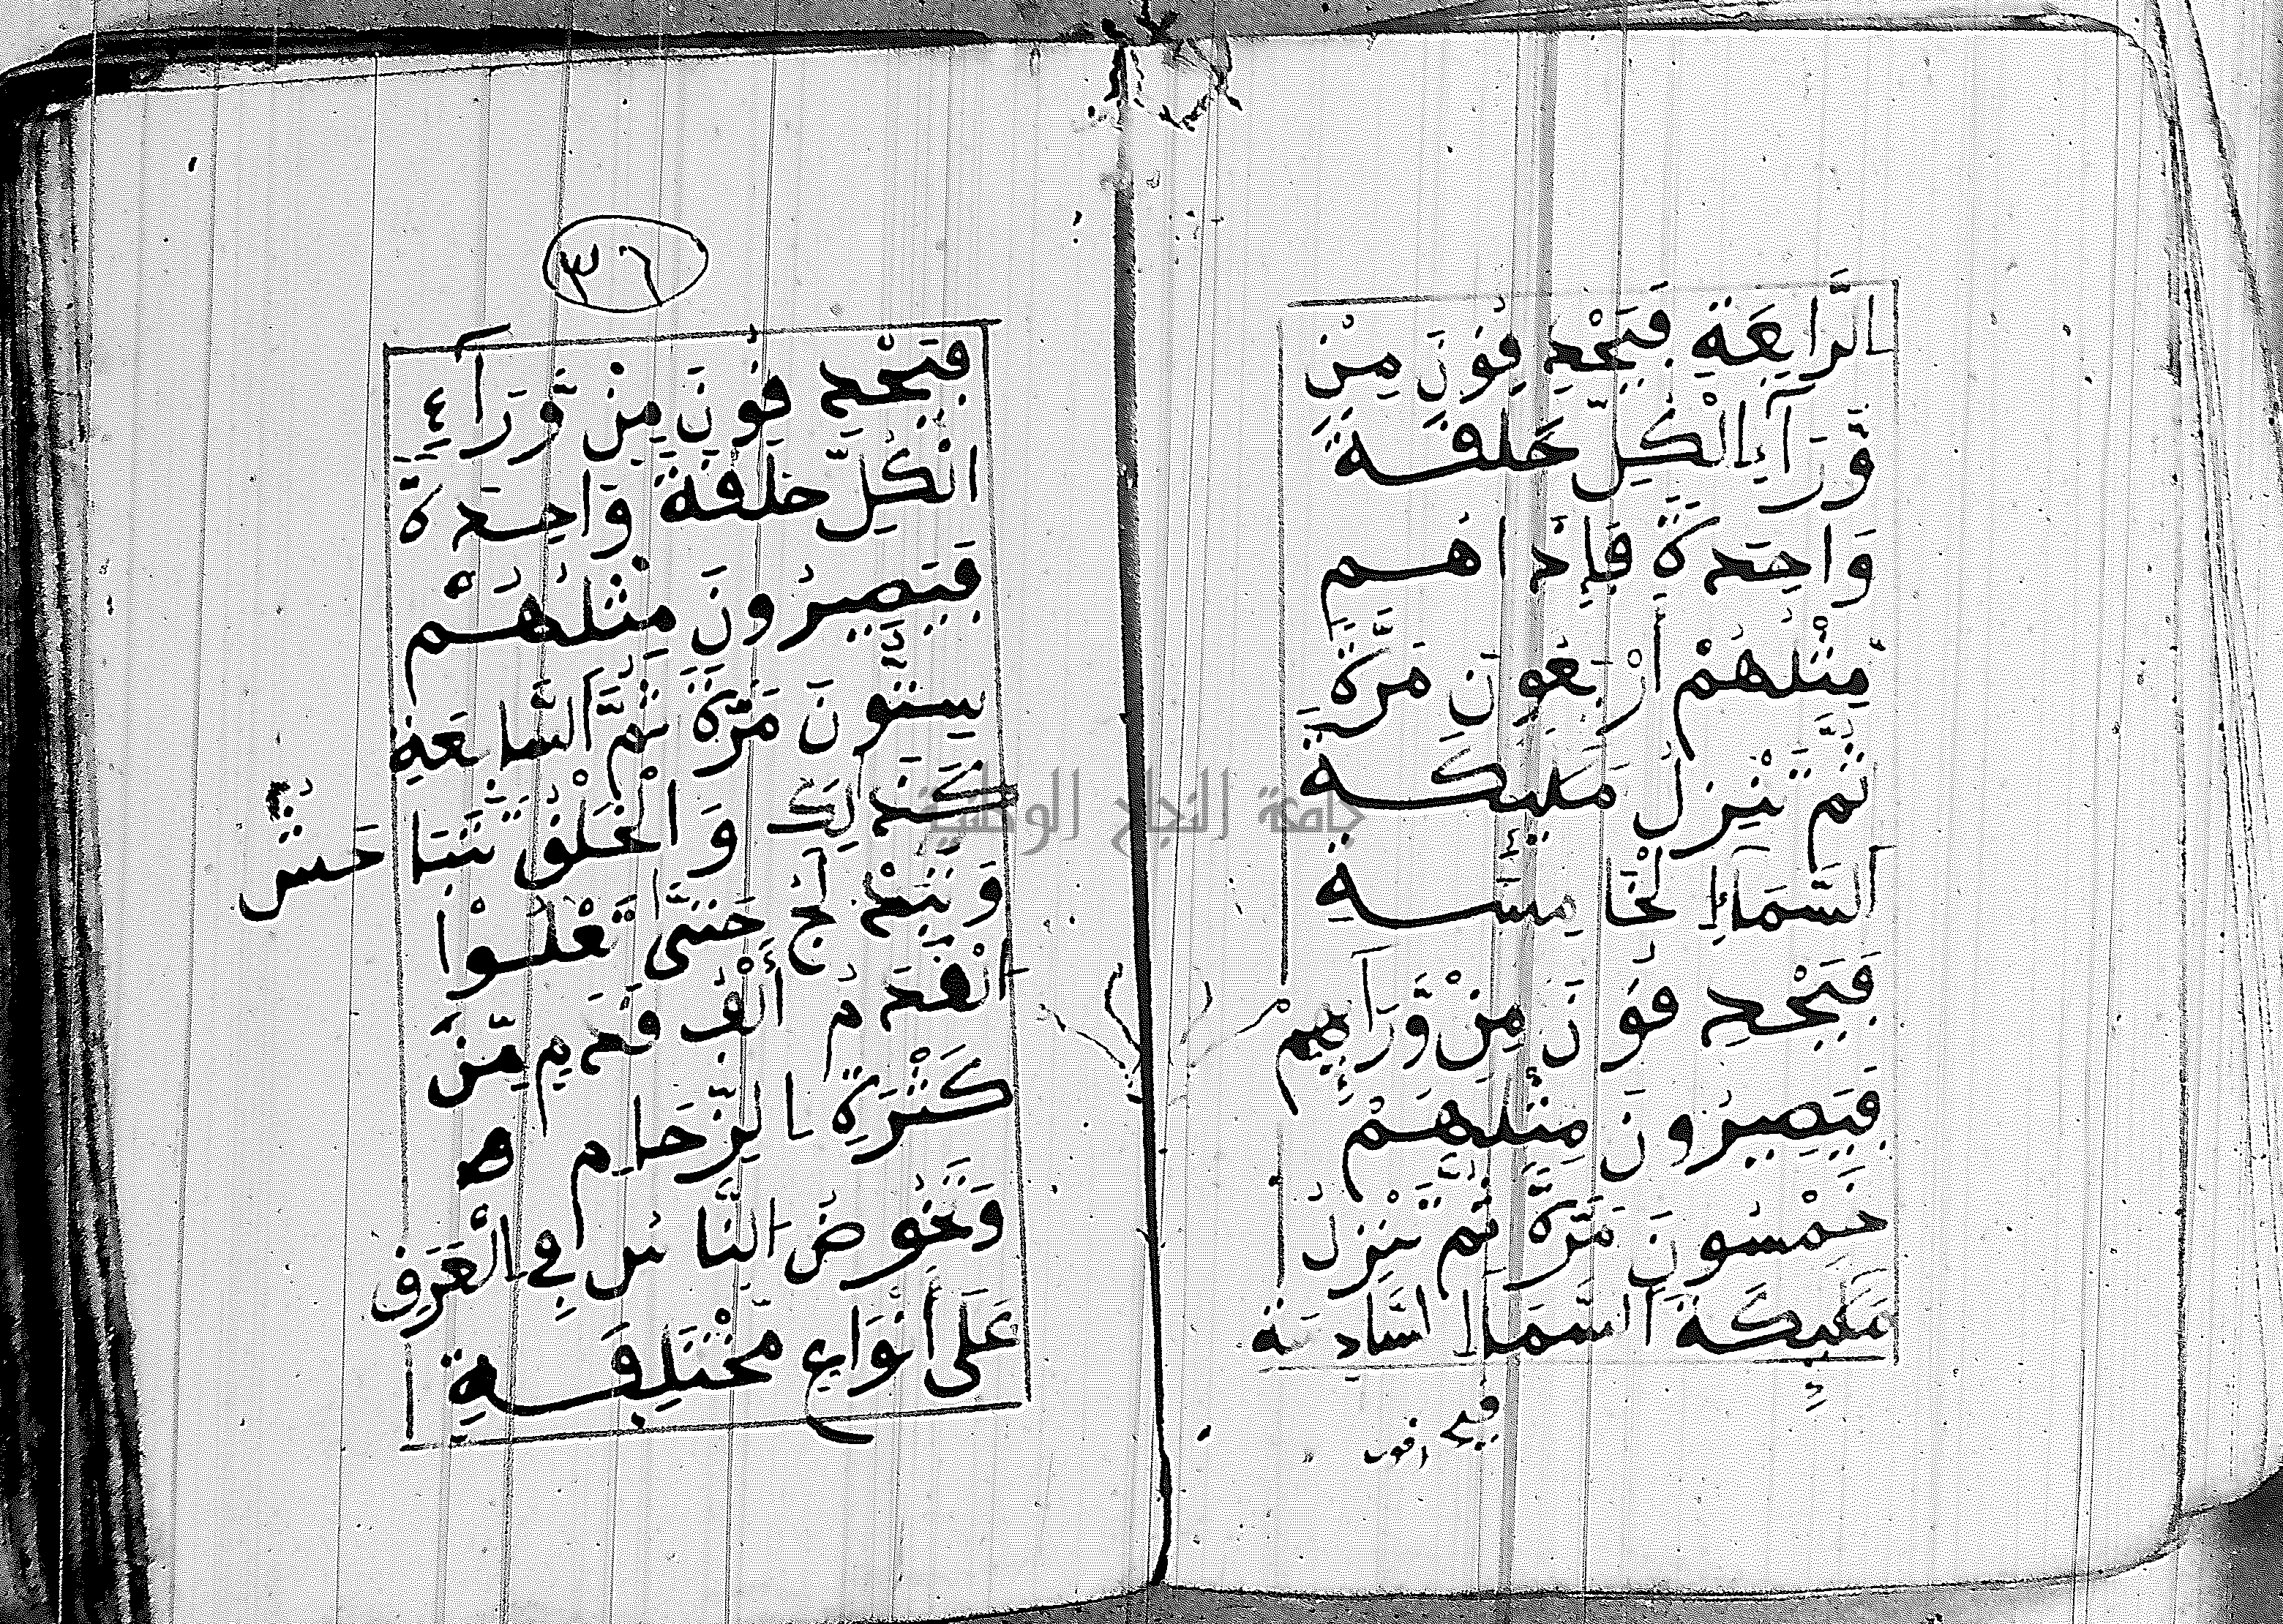 الرَّابِعَةِ فَيَحْدِقُونَ مِنْ
وَّرَآءِ الْكُلِّ حَلَقَةً
وَاحِدَةً فَإِذَا هُم
مِثْلُهُمْ أَرْبَعُونَ مَرَّةً
ثُمَّ تَنْزِلُ مَلٰيِكَةُ
السَّمَآءِ الْخَامِسَةِ
فَيَحْدِقُونَ مِنْ وَّرَآئِهِمْ
فَيَصِيرُونَ مِثْلَهُمْ
خَمْسُونَ مَرَّةً ثُمَّ تَنْزِلُ
مَلٰيِكَةُ السَّمَآءِ السَّادِسَة
فيحدقون
٣٦
فَيَحْدِقُونَ مِنْ وَّرَآءِ
الْكُلِّ حَلَقَةً وَاحِدَةً
فَيَصِيرُونَ مِثْلُهُمْ
سِتُّونَ مَرَّةً ثُمَّ السَّابِعَةِ
كَذٰلِكَ وَالْخَلْقُ تَتَاحَشُّ
وَيَنْدَلِجُ حَتَّى تَعْلُوا
الْقَدَمُ أَلْفَ قَدَمٍ مِّنْ
كَثْرَةِ الزِّحَامِ ۿ
وَتَخُوضُ النَّاسُ فِي الْعَرَقِ
عَلَى أَنْوَاعٍ مُّخْتَلِفَةٍ
جامعة النجاح الوطنية